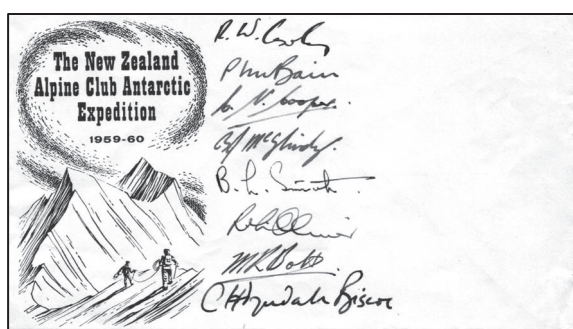 The New Zealand
Alpine Club Antarctic
Expedition
1959-60
R. W. Cawley
P M Bain
N. Cooper.
McGlinchy.
B. L. Smith.
Oliver
M R Bolt.
C H Tyndale Biscoe